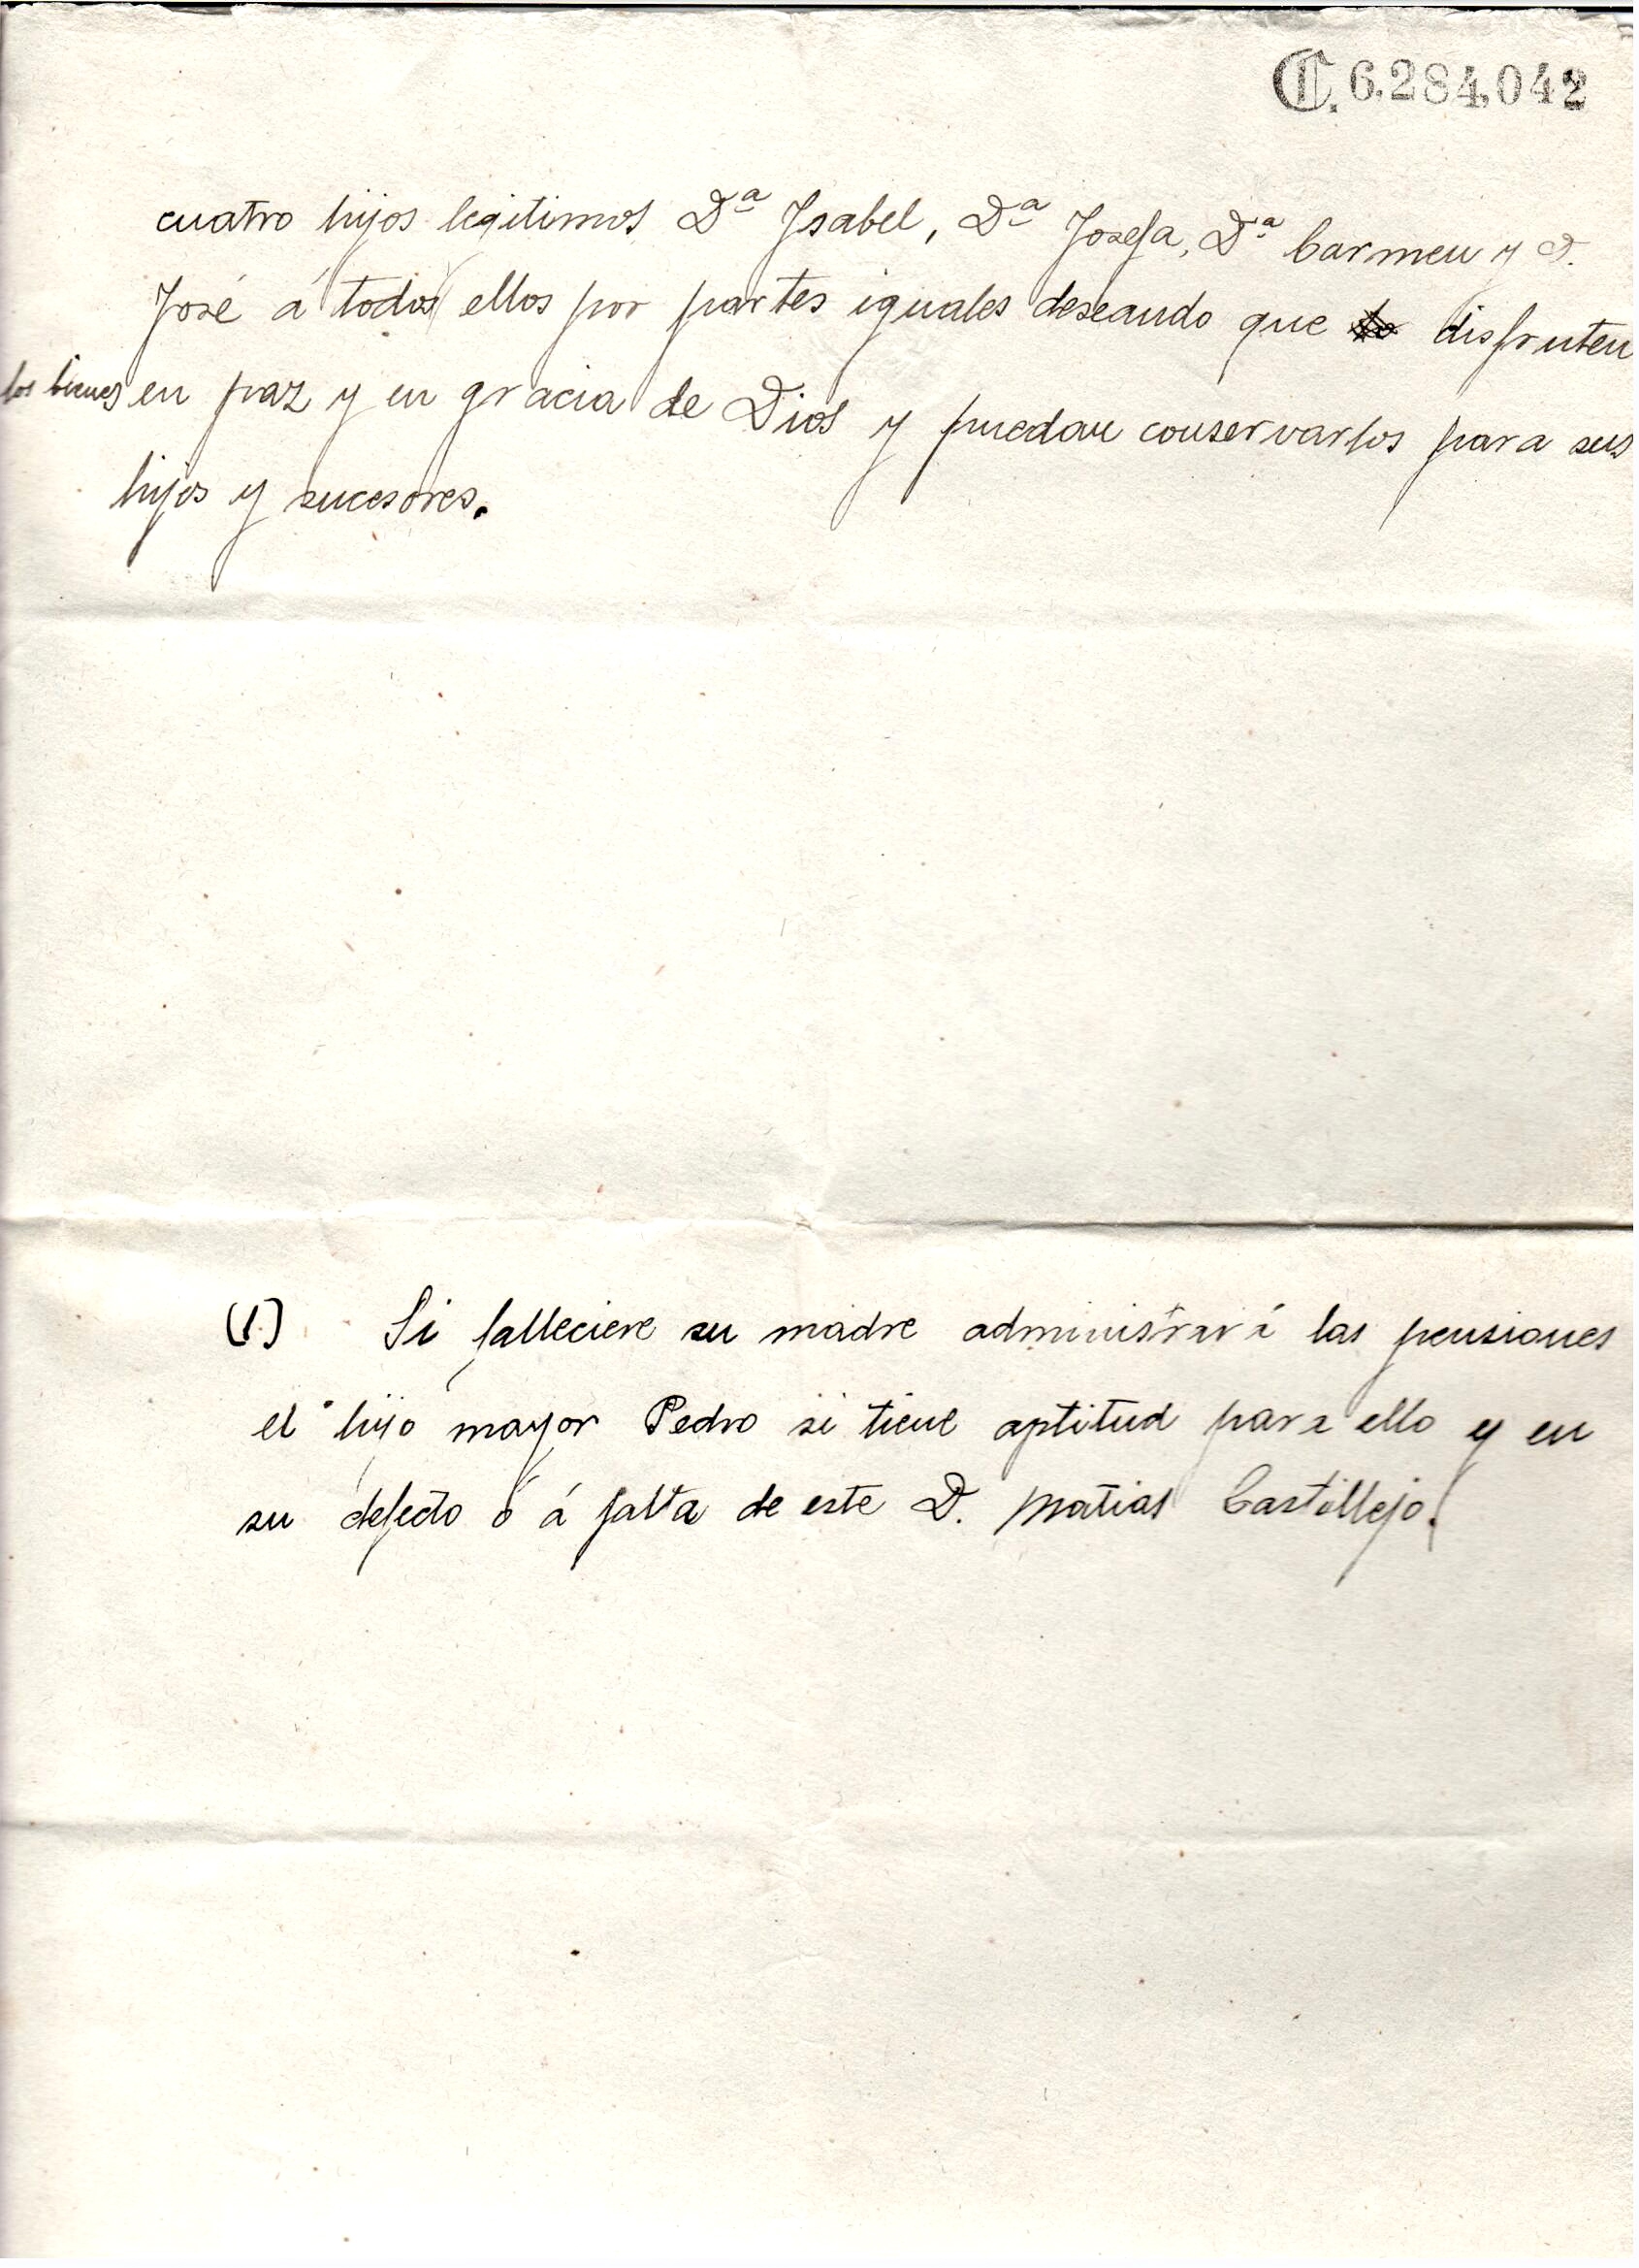 C. 6.284,042
cuatro hijos legitimos Dª Isabel, Dª Josefa, Dª Carmen y D.
José á todos ellos por partes iguales deseando que disfruten
los bienes en paz y en gracia de Dios y puedan conservarlos para sus
hijos y sucesores.
(1) Si falleciere su madre administrará las pensiones
el hijo mayor Pedro si tiene aptitud para ello y en
su defecto ó á falta de este D. Matias Castillejo.